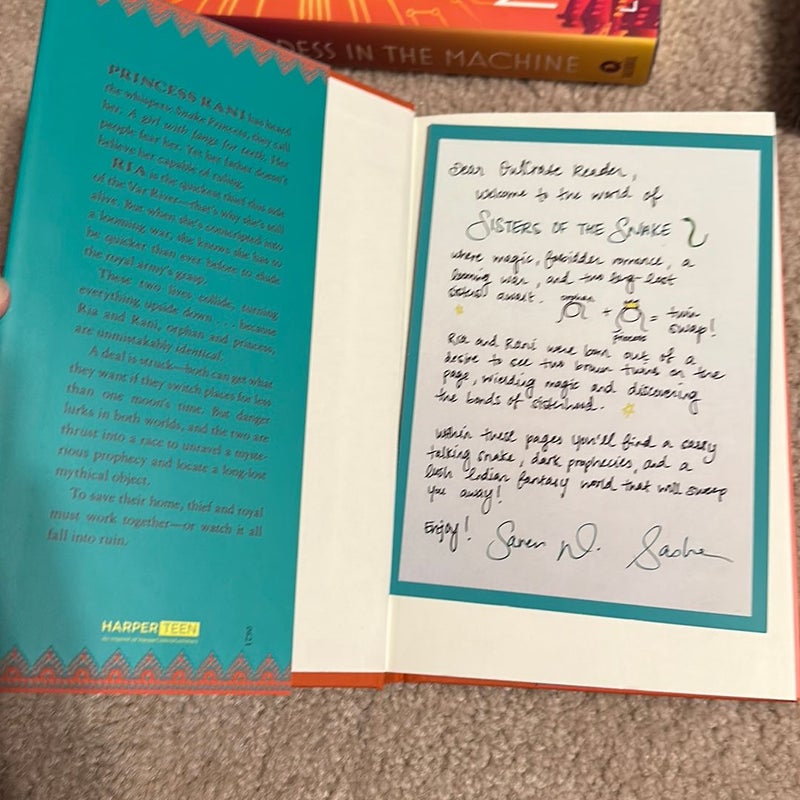 DESS IN THE MACHINE
PRINCESS RANI has heard
the whispers: Snake Princess, they call
her. A girl with fangs for teeth. Her
people fear her. Yet her father doesn't
believe her capable of ruling.
RIA is the quickest thief this side
of the Var River—that's why she's still
alive. But when she's conscripted into
a looming war, she knows she has to
be quicker than ever before to elude
the royal army's grasp.
These two lives collide, turning
everything upside down . . . because
Ria and Rani, orphan and princess,
are unmistakably identical.
A deal is struck—both can get what
they want if they switch places for less
than one moon's time. But danger
lurks in both worlds, and the two are
thrust into a race to unravel a myste-
rious prophecy and locate a long-lost
mythical object.
To save their home, thief and royal
must work together—or watch it all
fall into ruin.
HARPER TEEN
An imprint of HarperCollinsPublishers
0621
Dear OwlCrate Reader,
Welcome to the world of
SISTERS OF THE SNAKE
where magic, forbidden romance, a
looming war, and two long-lost
sisters await.
orphan + princess = twin
swap!
Ria and Rani were born out of a
desire to see two brown twins on the
page, wielding magic and discovering
the bonds of sisterhood.
Within these pages you'll find a sassy
talking snake, dark prophecies, and a
lush Indian fantasy world that will sweep
you away!
Enjoy! Saren N. Sasha